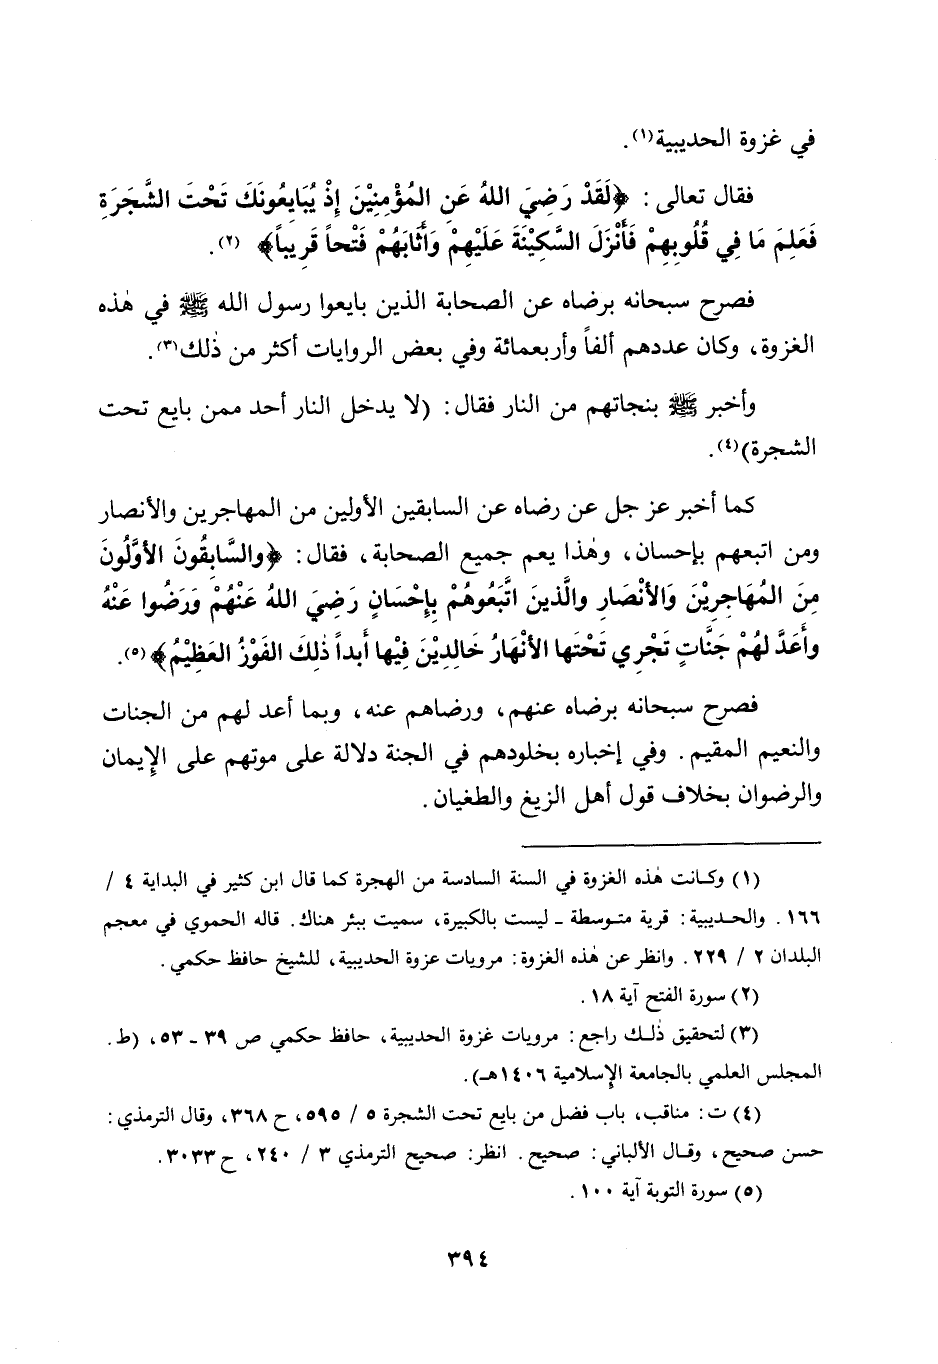 في غزوة الحديبية(١).
فقال تعالى: ﴿لَقَدْ رَضِيَ اللهُ عَنِ المُؤْمِنِيْنَ إِذْ يُبَايِعُونَكَ تَحْتَ الشَّجَرَةِ
فَعَلِمَ مَا فِي قُلُوبِهِمْ فَأَنْزَلَ السَّكِيْنَةَ عَلَيْهِمْ وَأَثَابَهُمْ فَتْحاً قَرِيباً﴾ (٢).
فصرح سبحانه برضاه عن الصحابة الذين بايعوا رسول الله ﷺ في هٰذه
الغزوة، وكان عددهم ألفاً وأربعمائة وفي بعض الروايات أكثر من ذٰلك(٣).
وأخبر ﷺ بنجاتهم من النار فقال: (لا يدخل النار أحد ممن بايع تحت
الشجرة)(٤).
كما أخبر عز جل عن رضاه عن السابقين الأولين من المهاجرين والأنصار
ومن اتبعهم بإحسان، وهٰذا يعم جميع الصحابة، فقال: ﴿والسَّابِقُونَ الأوَّلُونَ
مِنَ المُهَاجِرِيْنَ وَالأنْصَارِ والَّذينَ اتَّبَعُوهُمْ بِإِحْسَانٍ رَضِيَ اللهُ عَنْهُمْ وَرَضُوا عَنْهُ
وأَعَدَّ لهُمْ جَنَّاتٍ تَجْرِي تَحْتَها الأنْهَارُ خَالِدِيْنَ فِيْها أَبداً ذٰلِكَ الفَوْزُ العَظِيْمُ﴾(٥).
فصرح سبحانه برضاه عنهم، ورضاهم عنه، وبما أعد لهم من الجنات
والنعيم المقيم. وفي إخباره بخلودهم في الجنة دلالة على موتهم على الإيمان
والرضوان بخلاف قول أهل الزيغ والطغيان.
(١) وكانت هٰذه الغزوة في السنة السادسة من الهجرة كما قال ابن كثير في البداية ٤ /
١٦٦. والحديبية: قرية متوسطة - ليست بالكبيرة، سميت ببئر هناك. قاله الحموي في معجم
البلدان ٢ / ٢٢٩. وانظر عن هٰذه الغزوة: مرويات عزوة الحديبية، للشيخ حافظ حكمي.
(٢) سورة الفتح آية ١٨.
(٣) لتحقيق ذٰلك راجع: مرويات غزوة الحديبية، حافظ حكمي ص ٣٩ - ٥٣، (ط.
المجلس العلمي بالجامعة الإسلامية ١٤٠٦هـ).
(٤) ت: مناقب، باب فضل من بايع تحت الشجرة ٥ / ٥٩٥، ح ٣٦٨، وقال الترمذي:
حسن صحيح، وقال الألباني: صحيح. انظر: صحيح الترمذي ٣ / ٢٤٠، ح ٣٠٣٣.
(٥) سورة التوبة آية ١٠٠.
٣٩٤